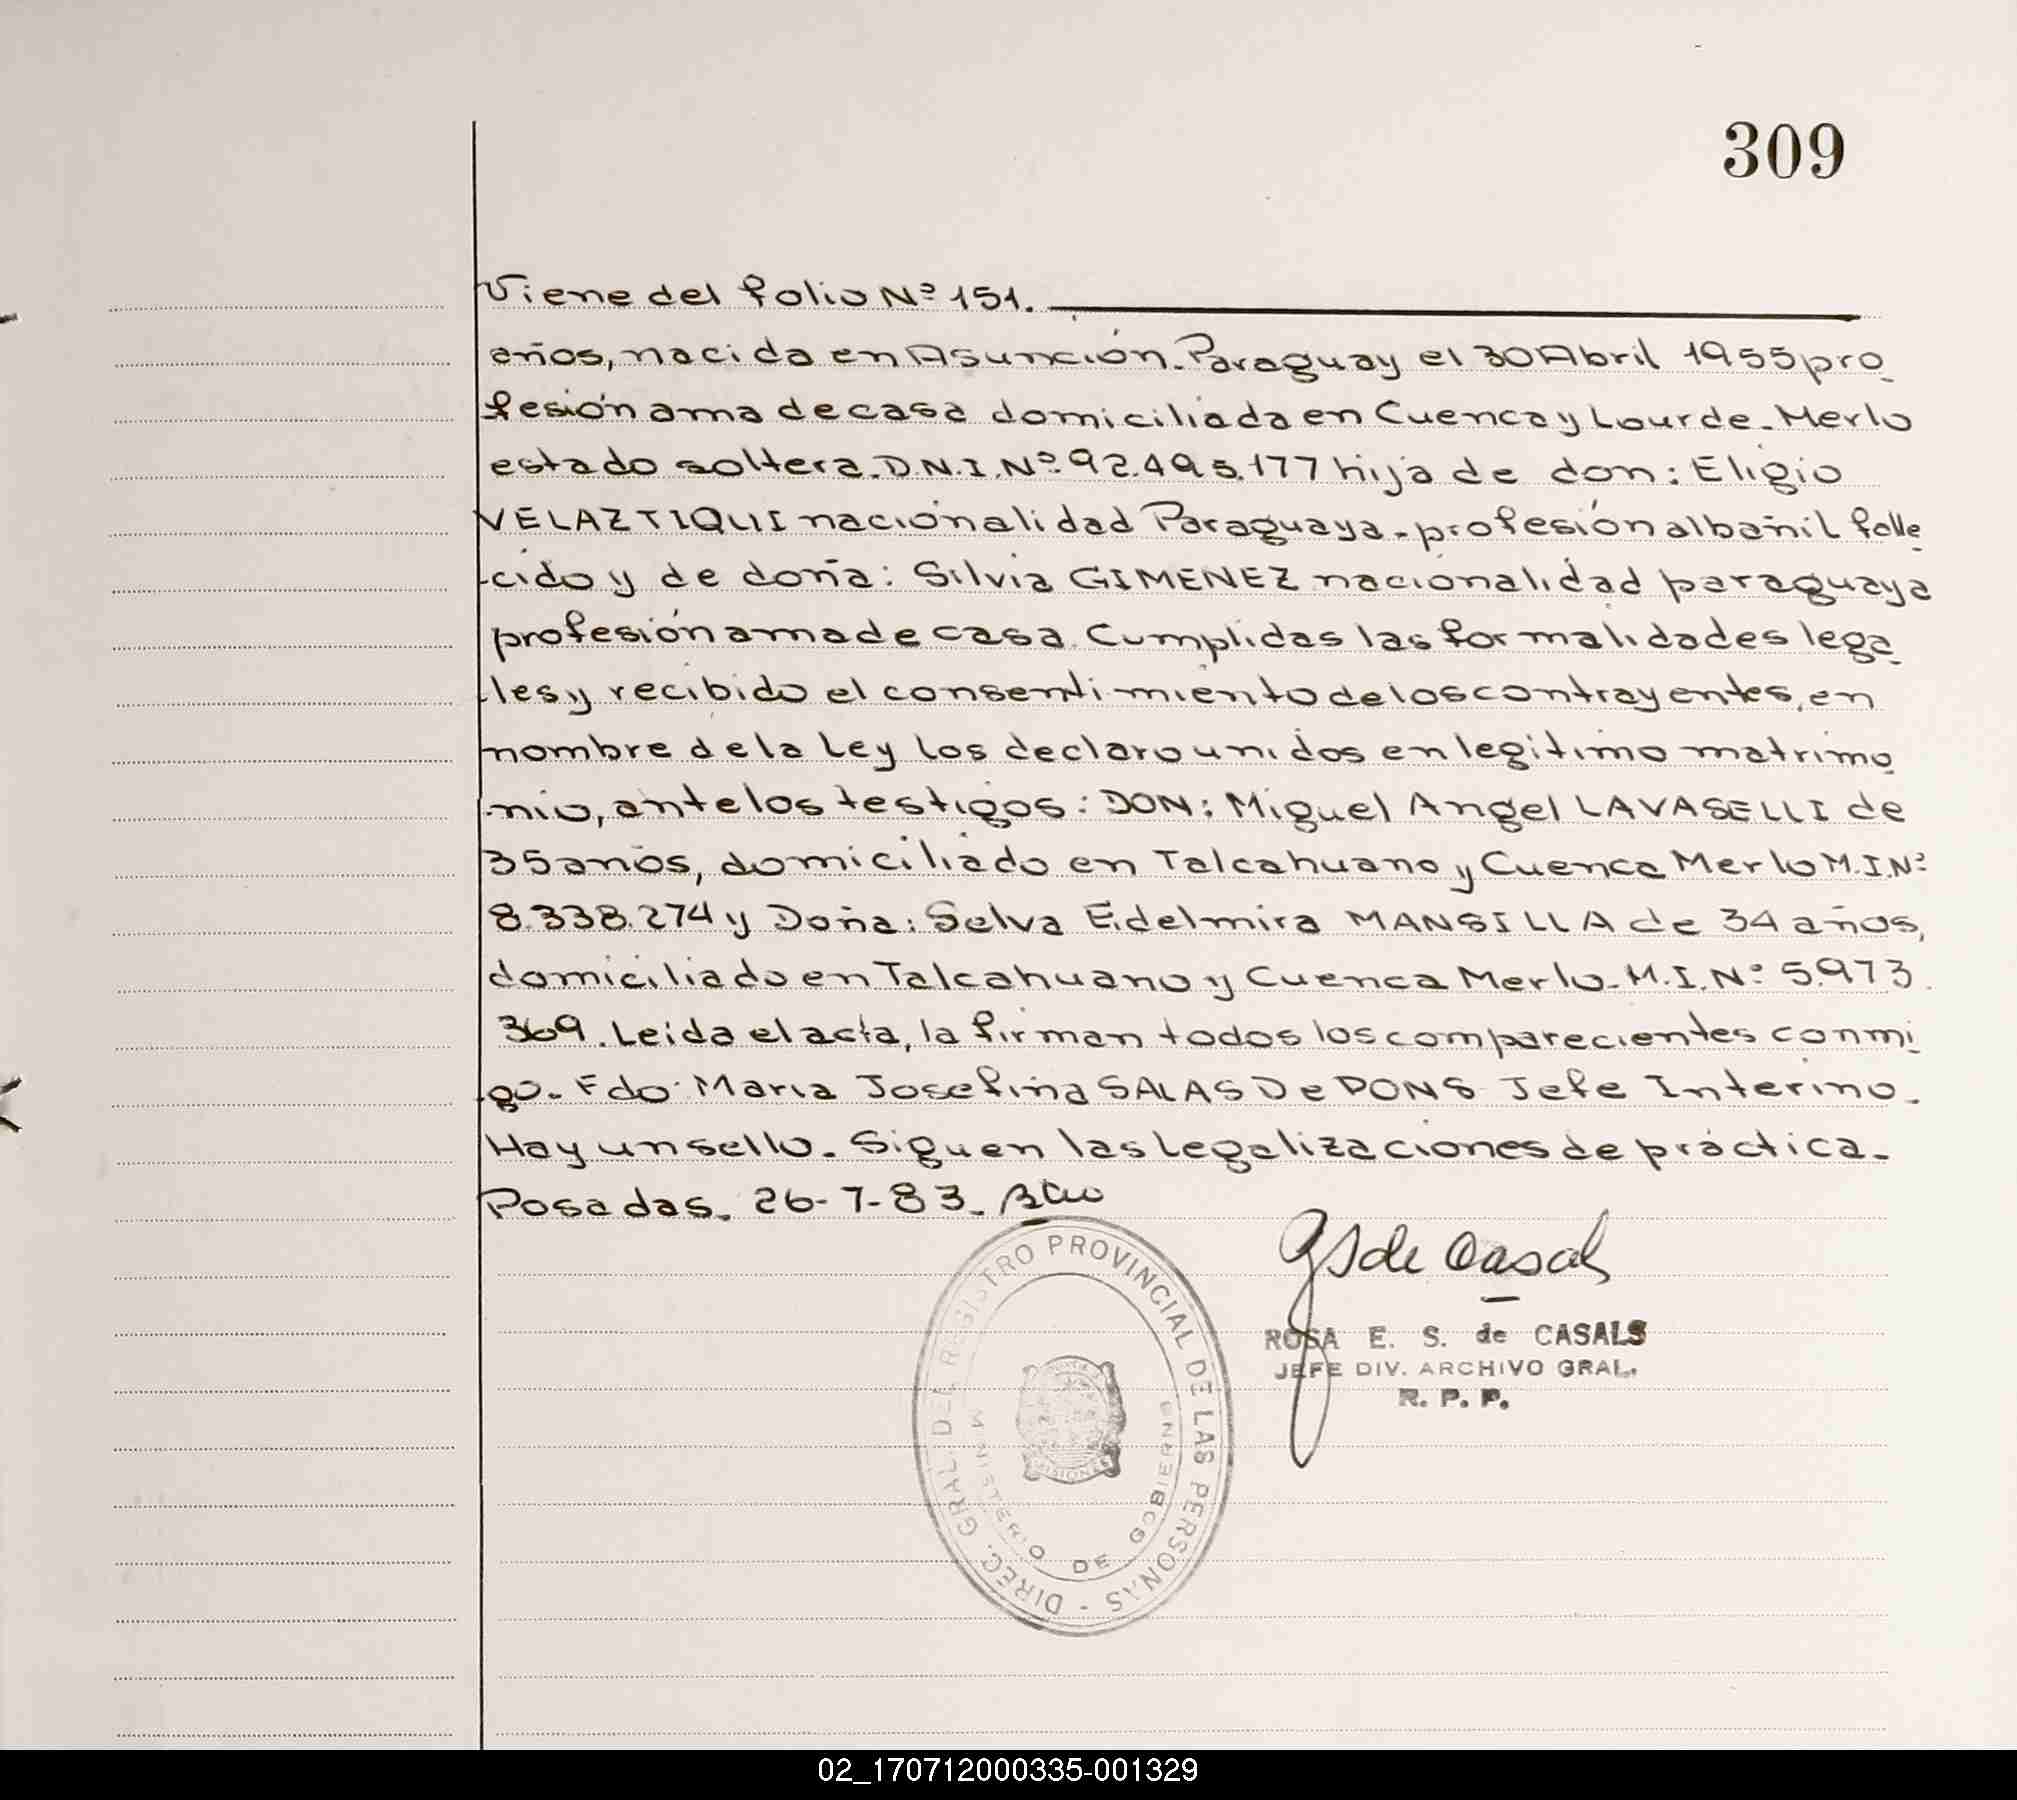 309
Viene del folio Nº 151.
años, nacida en Asunción. Paraguay el 30 Abril 1955 pro
fesión ama de casa domiciliada en Cuenca y Lourde. Merlo
estado soltera. D.N.I. Nº. 92.495.177 hija de don: Eligio
VELAZTIQUI nacionalidad Paraguaya - profesión albañil falle
cido y de doña: Silvia GIMENEZ nacionalidad paraguaya
profesión ama de casa. Cumplidas las formalidades lega
les y recibido el consentimiento de los contrayentes, en
nombre de la Ley los declaro unidos en legítimo matrimo
nio, ante los testigos: DON: Miguel Angel LAVASELLI de
35 años, domiciliado en Talcahuano y Cuenca Merlo M.I.Nº
8.338.274 y Doña: Selva Edelmira MANSILLA de 34 años,
domiciliado en Talcahuano y Cuenca Merlo. M.I. Nº 5.973.
369. Leída el acta, la firman todos los comparecientes conmi
go. Fdo. María Josefina SALAS De PONS Jefe Interino.
Hay un sello. Siguen las legalizaciones de práctica.
Posadas. 26-7-83.
de Casals
ROSA E. S. de CASALS
JEFE DIV. ARCHIVO GRAL.
R. P. P.
DIREC. GRAL. DEL REGISTRO PROVINCIAL DE LAS PERSONAS -
MINISTERIO DE GOBIERNO
MISIONES
02_170712000335-001329